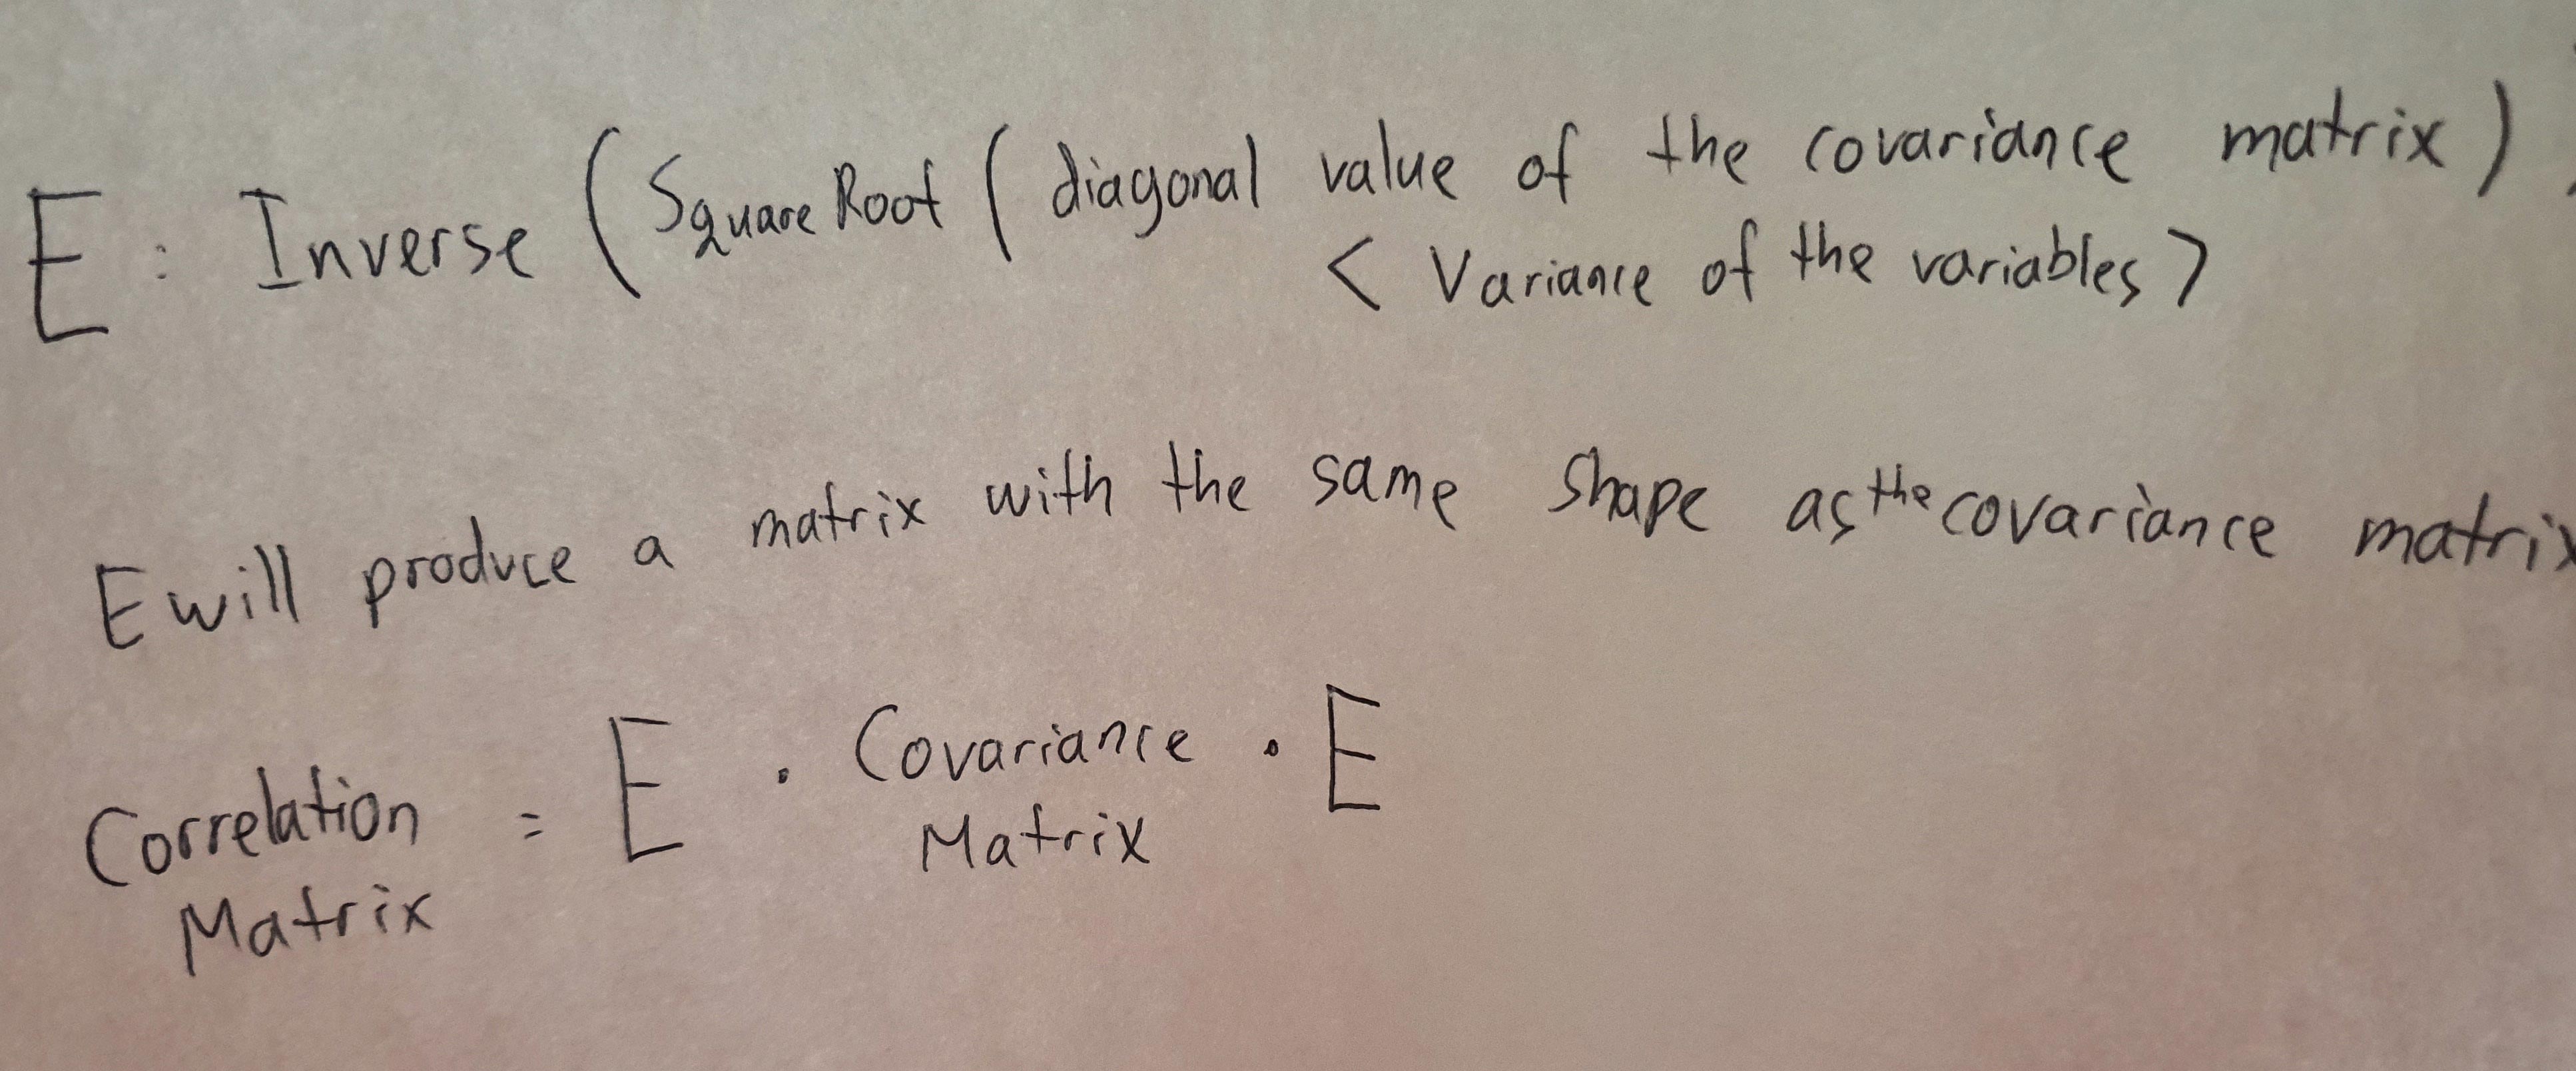 E : Inverse ( Square Root ( diagonal value of the covariance matrix )
< Variance of the variables >
E will produce a matrix with the same shape as the covariance matrix
Correlation Matrix = E . Covariance Matrix . E